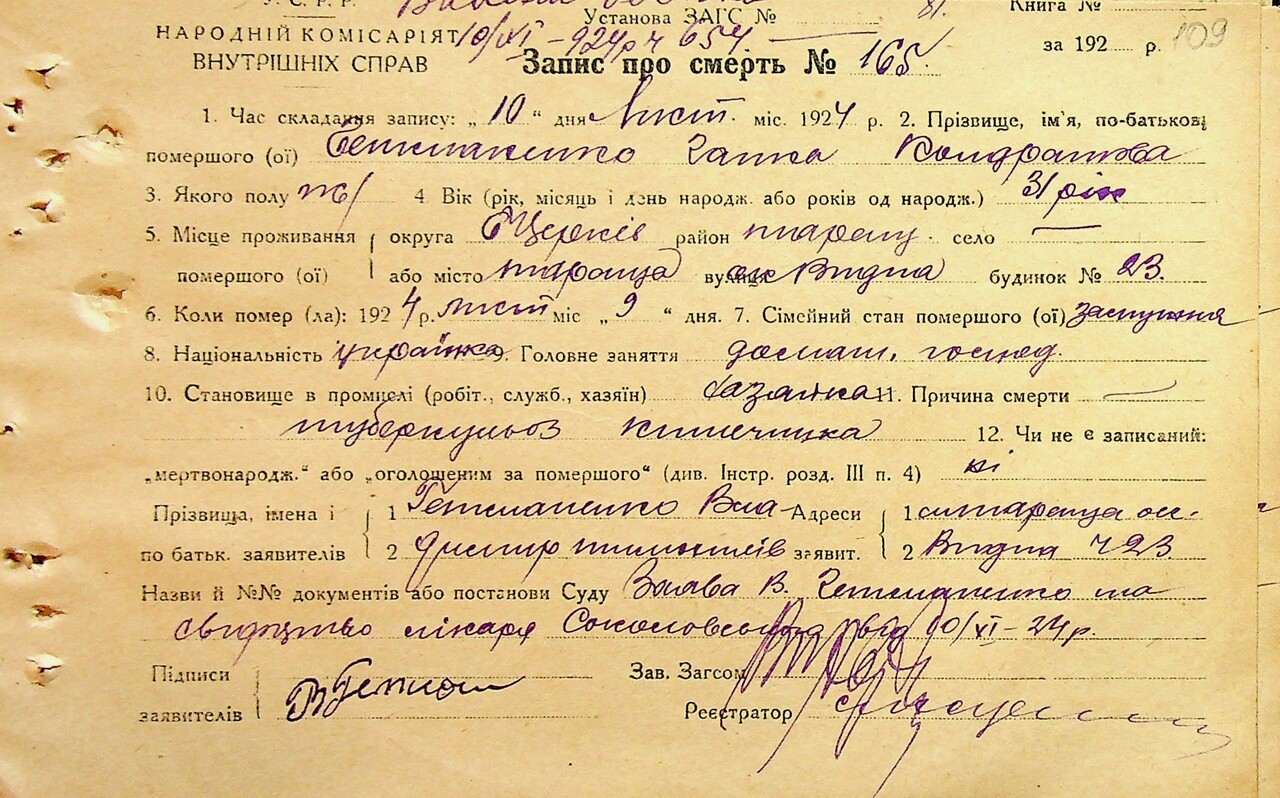 У. С. Р. Р. Установа ЗАГС № 81. Книга №
НАРОДНІЙ КОМІСАРІЯТ 10/XI – 924 р ч 654 за 192 р. 109
ВНУТРІШНІХ СПРАВ Запис про смерть № 165.
1. Час складання запису: „ 10 “ дня Лист. міс. 1924 р. 2. Прізвище, ім'я, по-батькові
помершого (ої) Гетманенко Гапка Кондратова
3. Якого полу ж/ 4 Вік (рік, місяць і день народж. або років од народж.) 31 рік
5. Місце проживання округа БЦерків район таращ. село —
помершого (ої) або місто тараща вулиця Видна будинок № 23.
6. Коли помер (ла): 1924 р. лист міс „ 9 “ дня. 7. Сімейний стан помершого (ої) замужня
8. Національність українка 9. Головне заняття домаш. господ.
10. Становище в промислі (робіт., служб., хазяїн) хазяйка 11. Причина смерти —
туберкульоз кишечника 12. Чи не є записаний:
„мертвонародж.“ або „оголошеним за помершого“ (див. Інстр. розд. III п. 4) ні
Прізвища, імена і 1 Гетманенко Вла- Адреси 1 м тараща
по батьк. заявителів 2 димир тимофіїв заявит. 2 Видна ч 23
Назви й №№ документів або постанови Суду Заява В. Гетманенко та
свидоцтво лікаря Соколовського від 10/XI – 24 р.
Підписи Зав. Загсом
заявителів В Гетман Реєстратор